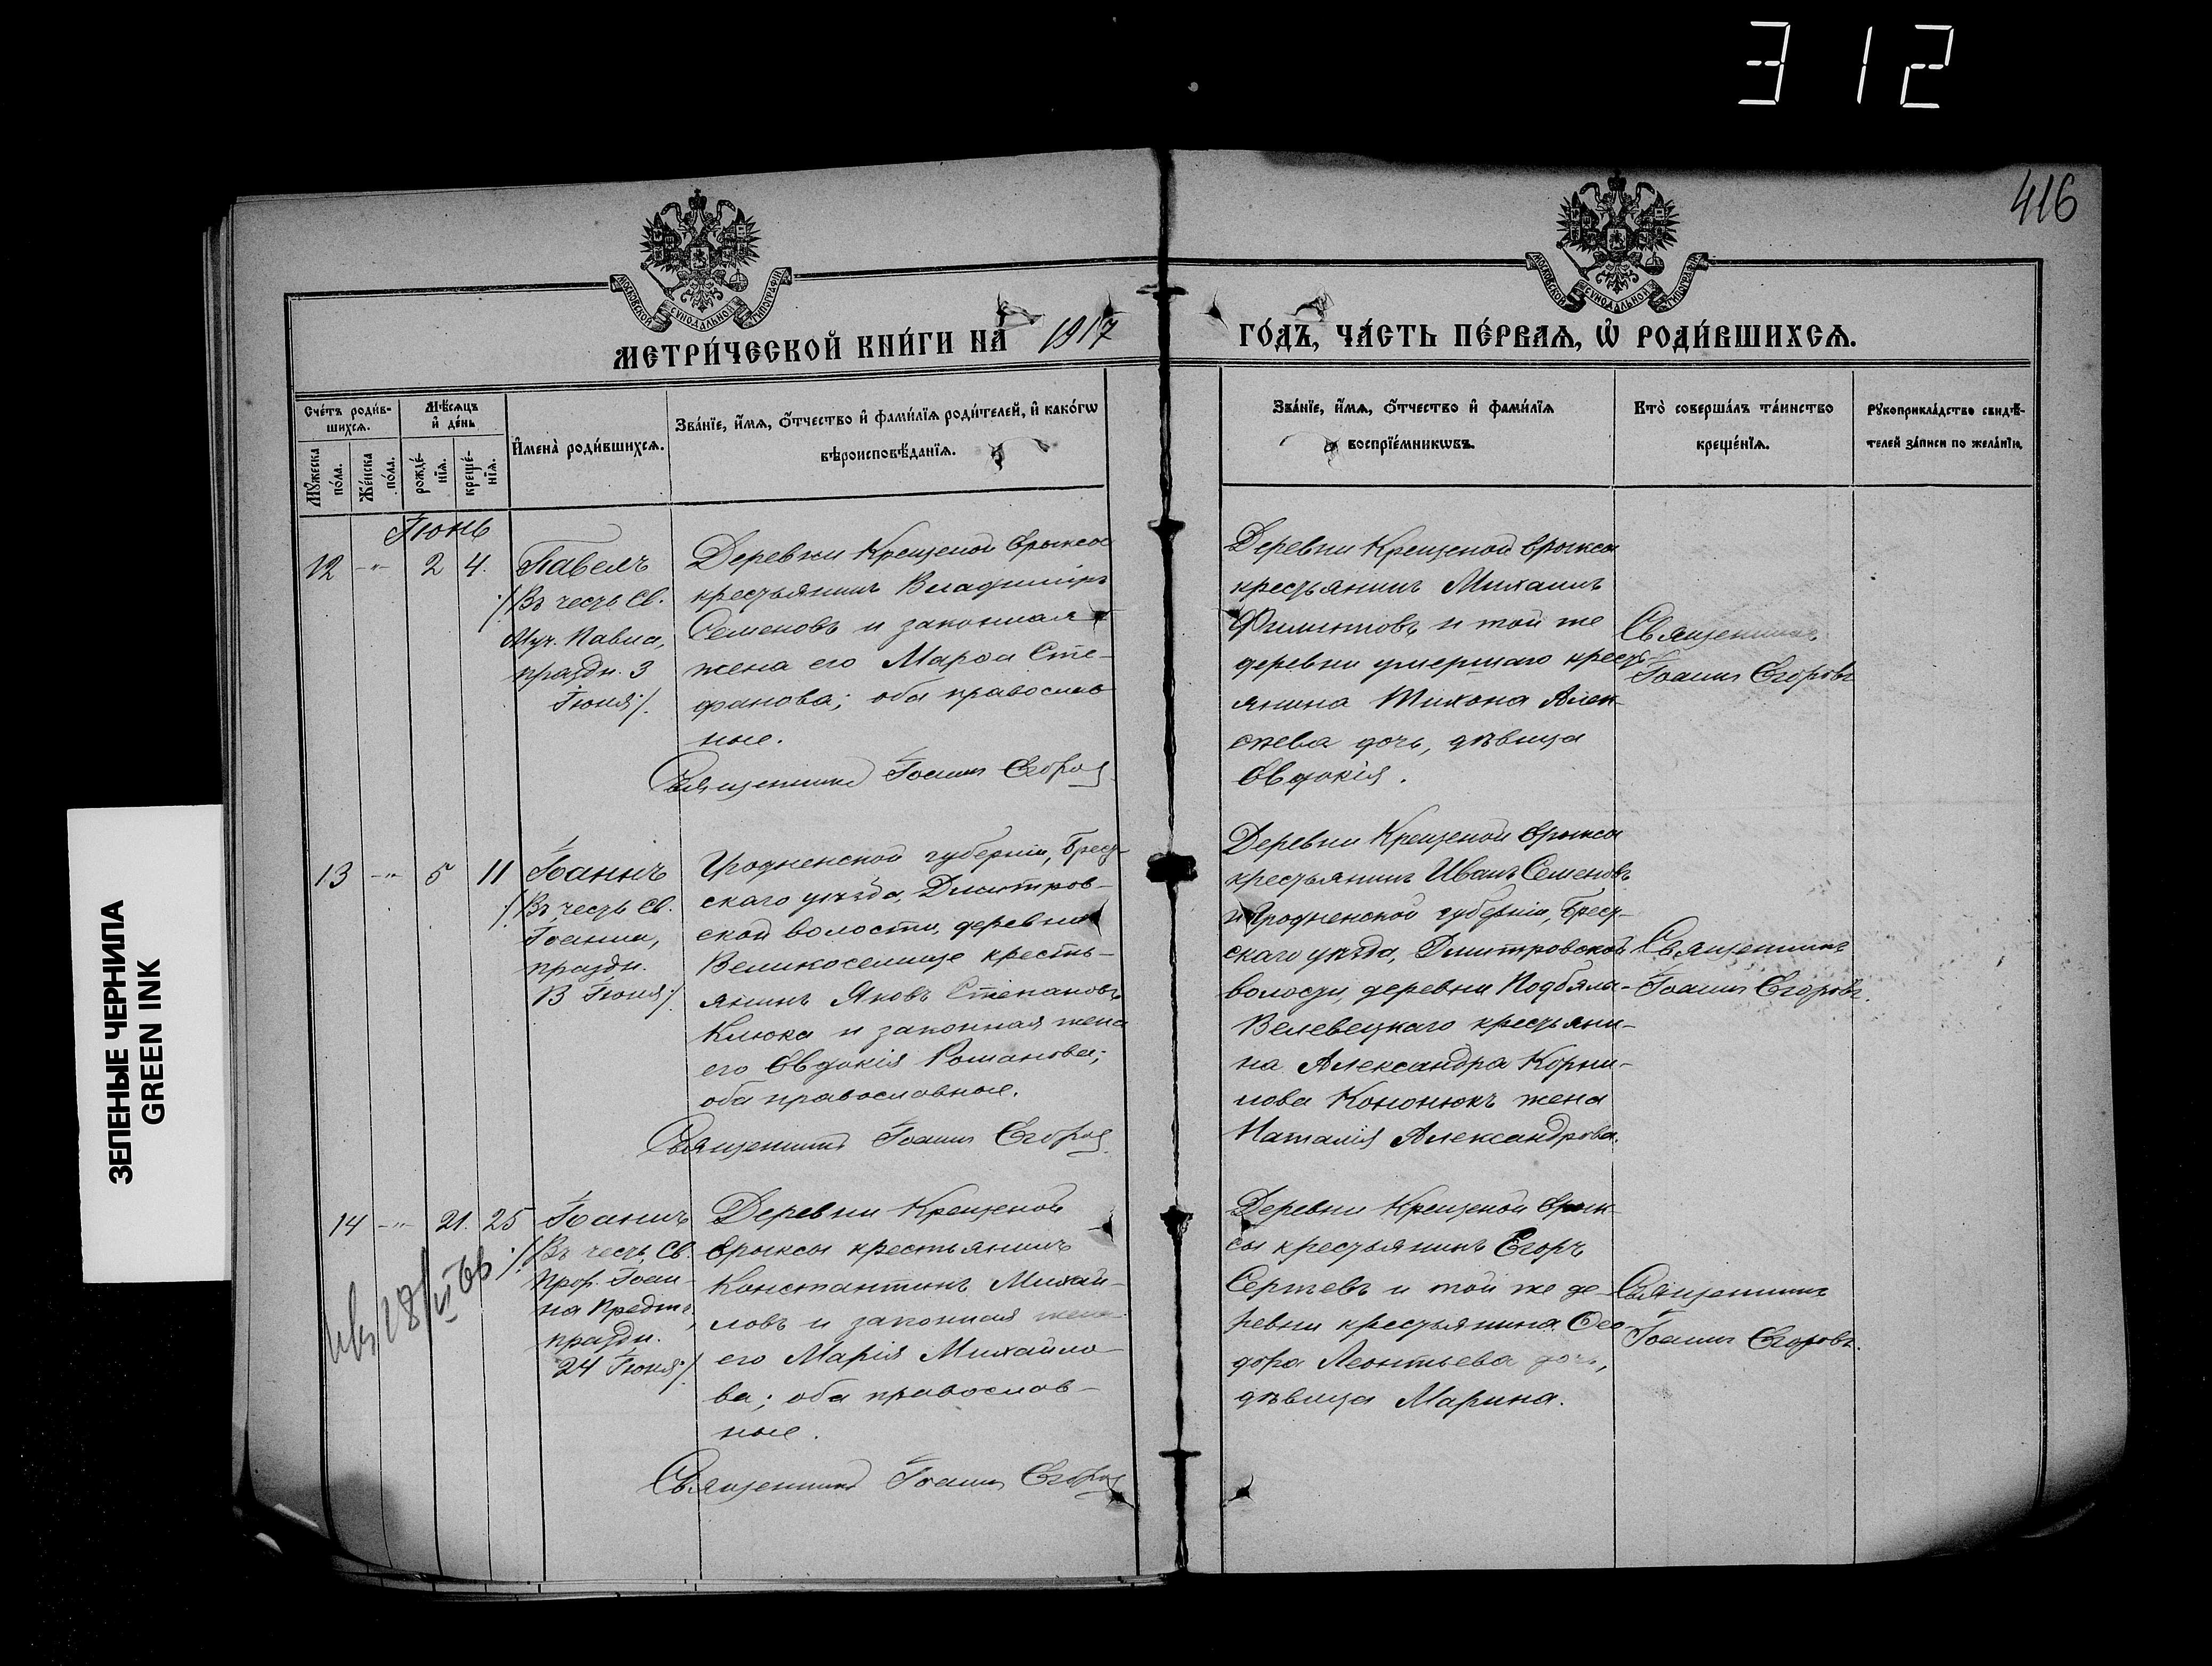 312
416
МОСКОВСКОЙ СѴНОДАЛЬНОЙ ТИПОГРАФІИ
МОСКОВСКОЙ СѴНОДАЛЬНОЙ ТИПОГРАФІИ
МЕТРИ́ЧЕСКОЙ КНИ́ГИ НА 1917
ГО́ДЪ, ЧА́СТЬ ПЕ́РВАѦ, Ѡ҆ РОДИ́ВШИХСѦ.
Сче́тъ роди́в-
шихсѧ.
Мѣ́сѧцъ
и҆ де́нь
И҆мена̀ роди́вшихсѧ.
Зва́нїе, и҆́мѧ, ѻ҆́тчество и҆ фами́лїѧ роди́телей, и҆ како́гѡ
вѣроисповѣ́данїѧ.
Мꙋ́жеска
по́ла.
Же́нска
по́ла.
рожде́-
нїѧ.
креще́-
нїѧ.
Зва́нїе, и҆́мѧ, ѻ҆́тчество и҆ фами́лїѧ
воспрїе́мникѡвъ.
Кто̀ соверша́лъ та́инство
креще́нїѧ.
Рꙋкоприкла́дство свидѣ́-
телей за́писи по жела́нїю.
Іюнь
12 -"- 2 4. Павелъ
/Въ честь Св.
Муч. Павла,
праздн. 3
Іюня/.
Деревни Крещеной Ерыксы
крестьянинъ Владиміръ
Семеновъ и законная
жена его Марѳа Сте-
фанова; оба православ
ные.
Священникъ Іоаннъ Егоровъ
Деревни Крещеной Ерыксы
крестьянинъ Михаилъ
Филиповъ и той же
деревни умершаго кресть-
янина Тихона Алек-
сѣева дочь, дѣвица
Евдокія.
Священникъ
Іоаннъ Егоровъ
13 -"- 5 11 Іоаннъ
/Въ честь Св.
Іоанна,
праздн.
Іюня/.
Гродненской губерніи, Брест-
скаго уѣзда, Дмитров-
ской волости, деревни
Великоселище кресть-
янинъ Яковъ Степановъ
Клюка и законная жена
его Евдокія Романова;
оба православные.
Священникъ Іоаннъ Егоровъ
Деревни Крещеной Ерыксы
крестьянинъ Иванъ Семеновъ
и Гродненской губерніи, Брест-
скаго уѣзда, Дмитровской
волости, деревни Подбяла-
Велевецкаго крестьяни-
на Александра Корни-
лова Кононюкъ жена
Наталія Александрова.
Священникъ
Іоаннъ Егоровъ.
14 -"- 21. 25 Іоаннъ
/Въ честь Св.
Прор. Іоан-
на Предт.,
праздн.
24 Іюня/.
28/VI 66
Деревни Крещеной
Ерыксы крестьянинъ
Константинъ Михай-
ловъ и законная жена
его Марія Михайло-
ва; оба православ-
ные.
Священникъ Іоаннъ Егоровъ
Деревни Крещеной Ерык-
сы крестьянинъ Егоръ
Сергѣевъ и той же де-
ревни крестьянина Ѳео-
дора Леонтьева дочь,
дѣвица Марина.
Священникъ
Іоаннъ Егоровъ.
ЗЕЛЕНЫЕ ЧЕРНИЛА
GREEN INK